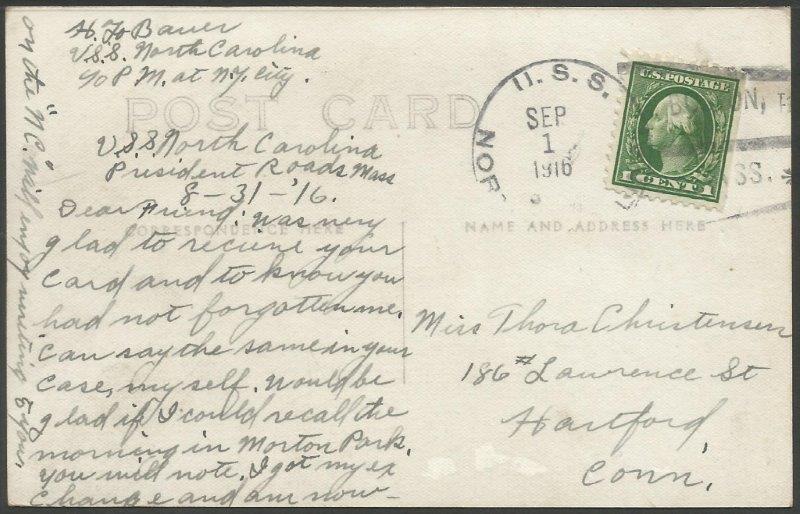 H. Jo Bauer
U.S.S. North Carolina
c/o P.M. at N.Y. City.
POST CARD
U.S.S. North Carolina
President Roads, Mass
8-31-'16.
Dear Friend: Was very
CORRESPONDENCE HERE
glad to recieve your
card and to know you
had not forgotten me.
Can say the same in your
case, my self. Would be
glad if I could recall the
morning in Morton Park.
You will note. I got my ex
change and am now-
on the "NC." Will enjoy writing to you,
U.S.S.
SEP
1
1916
U.S. POSTAGE
1 CENT 1
NAME AND ADDRESS HERE
Miss Thora Christensen
186 # Lawrence St
Hartford
Conn.